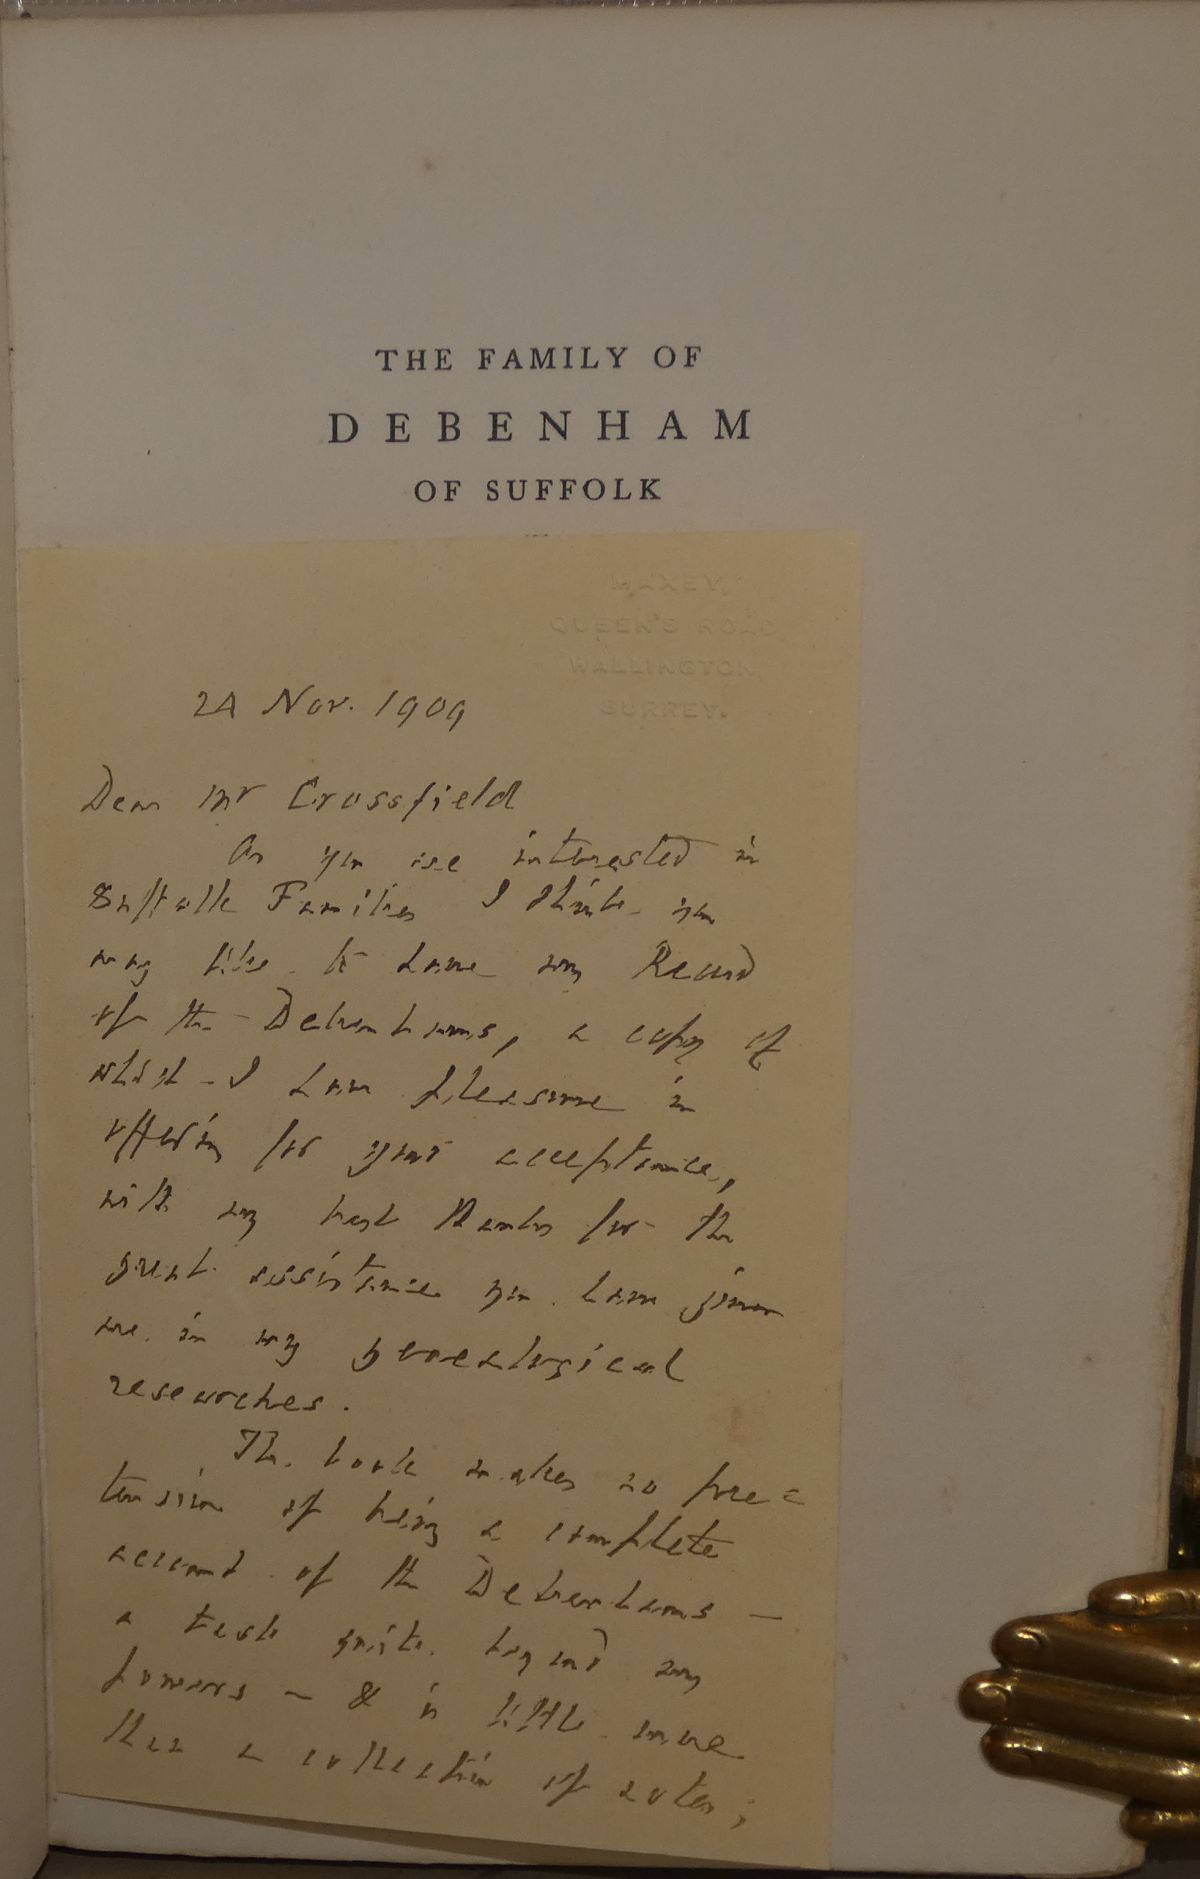 THE FAMILY OF
DEBENHAM
OF SUFFOLK
MAXEY,
QUEEN'S ROAD,
WALLINGTON,
SURREY.
24 Nov. 1909
Dear Mr Crossfield
As you are interested in
Suffolk Families I think you
may like to have my Record
of the Debenhams, a copy of
which I have pleasure in
offering for your acceptance,
with my best thanks for the
great assistance you have given
me in my genealogical
researches.
The book makes no pre=
tension of being a complete
account of the Debenhams —
a task quite beyond my
powers — & is little more
than a collection of notes;